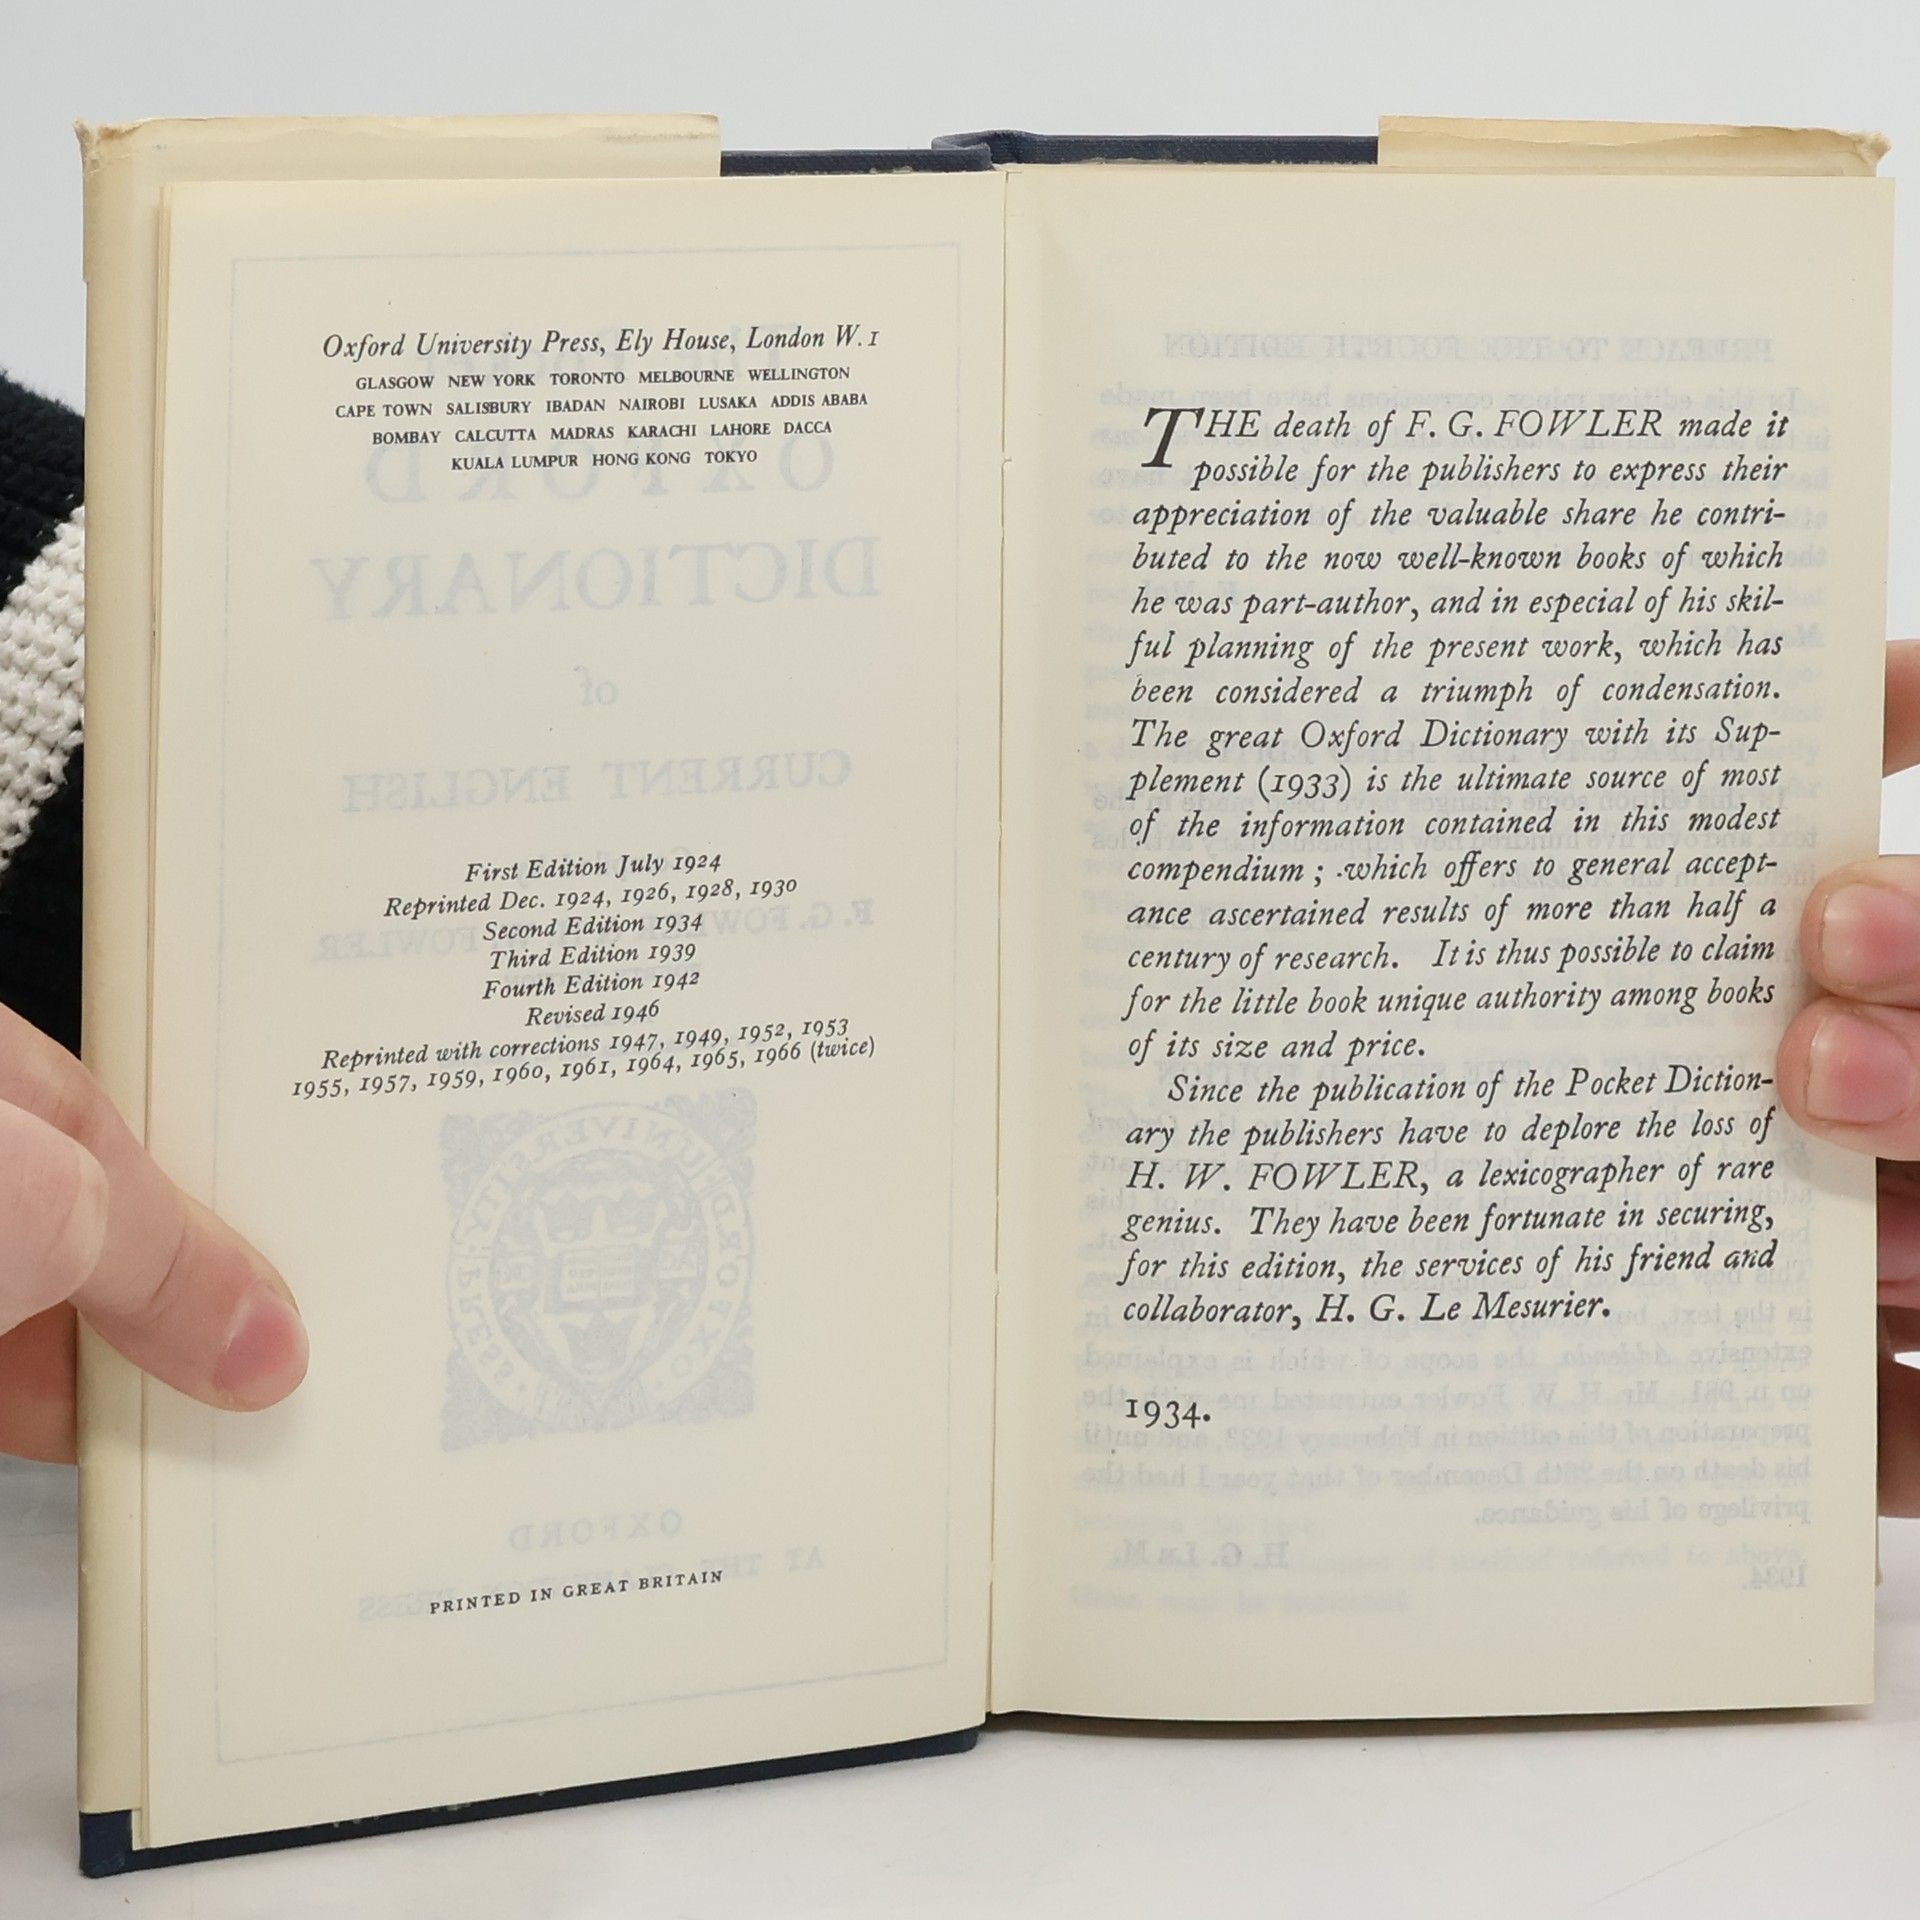 Oxford University Press, Ely House, London W.1
GLASGOW NEW YORK TORONTO MELBOURNE WELLINGTON
CAPE TOWN SALISBURY IBADAN NAIROBI LUSAKA ADDIS ABABA
BOMBAY CALCUTTA MADRAS KARACHI LAHORE DACCA
KUALA LUMPUR HONG KONG TOKYO
First Edition July 1924
Reprinted Dec. 1924, 1926, 1928, 1930
Second Edition 1934
Third Edition 1939
Fourth Edition 1942
Revised 1946
Reprinted with corrections 1947, 1949, 1952, 1953
1955, 1957, 1959, 1960, 1961, 1964, 1965, 1966 (twice)
PRINTED IN GREAT BRITAIN
THE death of F. G. FOWLER made it
possible for the publishers to express their
appreciation of the valuable share he contri-
buted to the now well-known books of which
he was part-author, and in especial of his skil-
ful planning of the present work, which has
been considered a triumph of condensation.
The great Oxford Dictionary with its Sup-
plement (1933) is the ultimate source of most
of the information contained in this modest
compendium; which offers to general accept-
ance ascertained results of more than half a
century of research. It is thus possible to claim
for the little book unique authority among books
of its size and price.
Since the publication of the Pocket Diction-
ary the publishers have to deplore the loss of
H. W. FOWLER, a lexicographer of rare
genius. They have been fortunate in securing,
for this edition, the services of his friend and
collaborator, H. G. Le Mesurier.
1934.